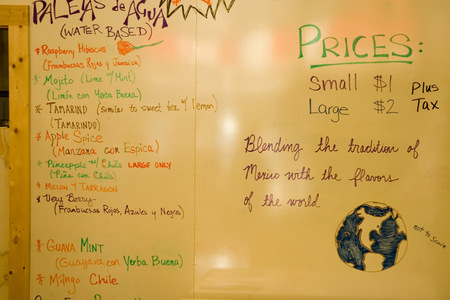 PALETAS de AGUA
(WATER BASED)
* Raspberry Hibiscus
(Frambuesas Rojas y Jamaica)
* Mojito (Lime & Mint)
(Limón con Yerba Buena)
* TAMARIND (similar to sweet tea & lemon)
(TAMARINDO)
* Apple Spice
(Manzana con Espica)
* Pineapple w/ Chile LARGE ONLY
(Piña con Chile)
* MELON Y TARRAGON
* Very Berry
(Frambuesas Rojas, Azules y Negras)
* GUAVA MINT
(Guayava con Yerba Buena)
* Mango Chile
PRICES:
Small $1
Large $2
Plus
Tax
Blending the tradition of
Mexico with the flavors
of the world
not to scale